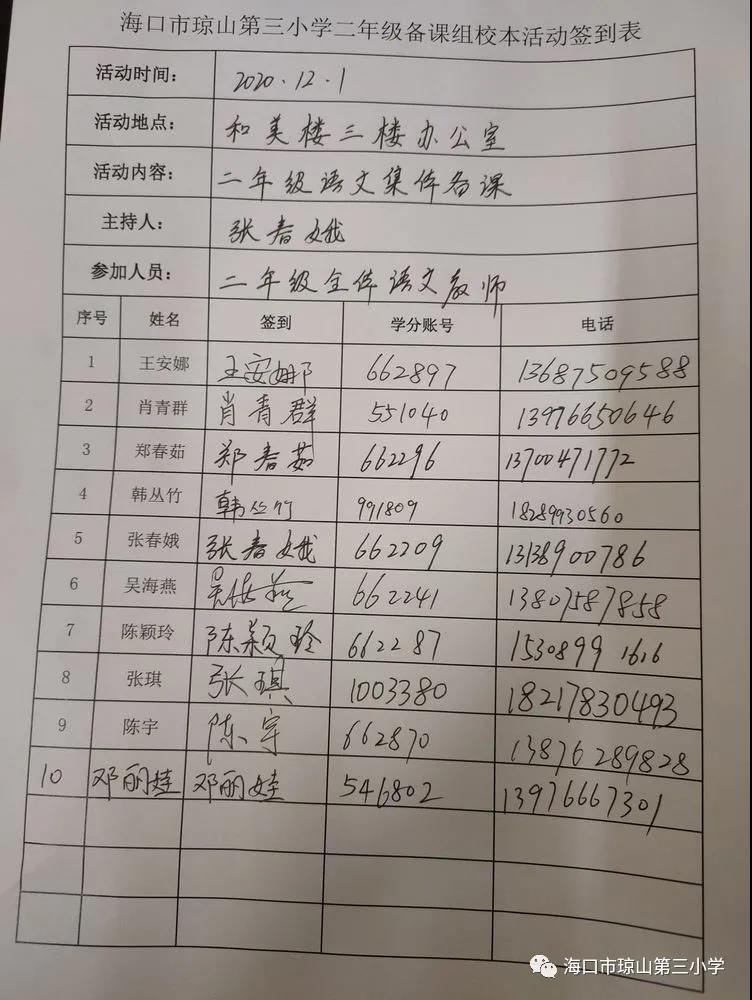 海口市琼山第三小学二年级备课组校本活动签到表
活动时间： 2020.12.1
活动地点： 和美楼三楼办公室
活动内容： 二年级语文集体备课
主持人： 张春娥
参加人员： 二年级全体语文教师
序号 姓名 签到 学分账号 电话
1 王安娜 王安娜 662897 13687509588
2 肖青群 肖青群 551040 13976650646
3 郑春茹 郑春茹 662296 13700471772
4 韩丛竹 韩丛竹 991809 18289930560
5 张春娥 张春娥 662209 13138900786
6 吴海燕 吴海燕 662241 13807587858
7 陈颖玲 陈颖玲 662287 1530899 1616
8 张琪 张琪 1003380 18217830493
9 陈宇 陈宇 662870 13876289828
10 邓丽娃 邓丽娃 546802 13976667301
海口市琼山第三小学